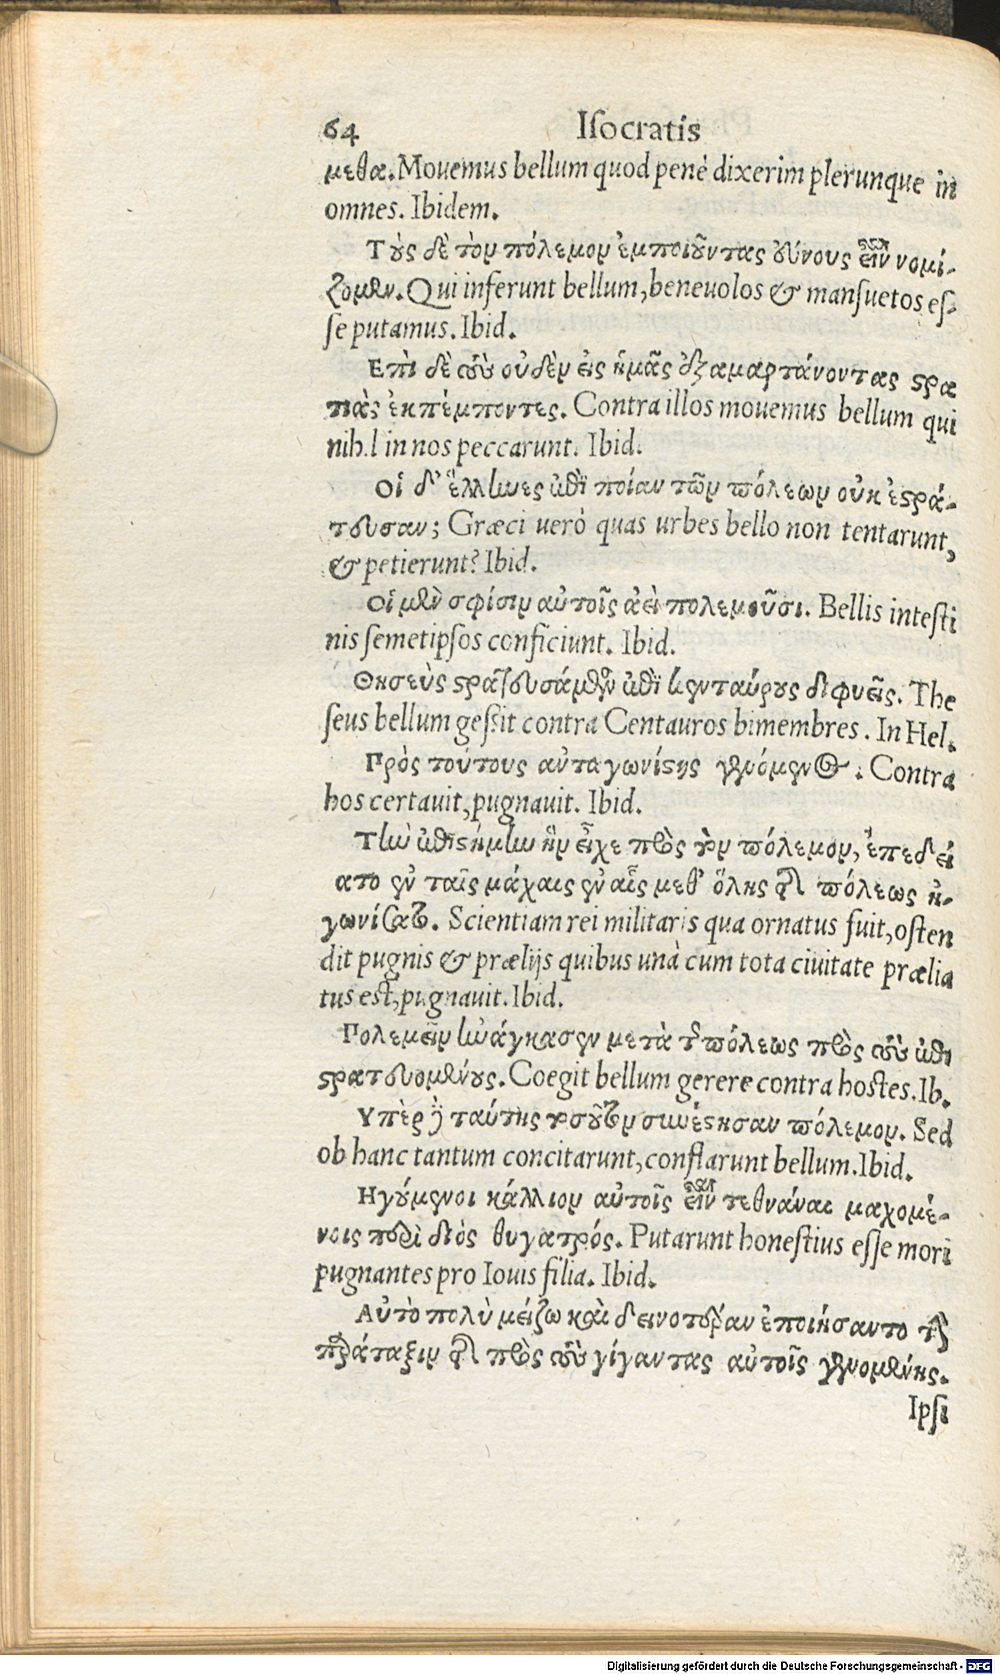 64 Isocratis
μεθα. Mouemus bellum quod penè dixerim plerunque in
omnes. Ibidem.
Τοὺς δὲ τὸν πόλεμον ἐμποιοῦντας εὔνους εἶναι νομί-
ζομεν. Qui inferunt bellum, beneuolos & mansuetos es-
se putamus. Ibid.
Επὶ δὲ τοὺς οὐδὲν εἰς ἡμᾶς ἐξαμαρτάνοντας στρα
τιὰς ἐκπέμποντες. Contra illos mouemus bellum qui
nih.l in nos peccarunt. Ibid.
Οἱ δ' ἕλληνες ἐπὶ ποίαν τῶν πόλεων οὐκ ἐστρά-
τευσαν; Græci uerò quas urbes bello non tentarunt,
& petierunt? Ibid.
Οἱ μὲν σφίσιν αὐτοῖς ἀεὶ πολεμοῦσι. Bellis intesti
nis semetipsos conficiunt. Ibid.
Θησεὺς στρατευσάμενος ἐπὶ κενταύρους διφυεῖς. The
seus bellum gessit contra Centauros bimembres. In Hel.
Πρὸς τούτους ἀνταγωνίστης γενόμενος. Contra
hos certauit, pugnauit. Ibid.
Τὴν ἐπιστήμην ἣν εἶχε πρὸς τὸν πόλεμον, ἐπεδεί
ατο ἐν ταῖς μάχαις ἐν αἷς μεθ' ὅλης τῆς πόλεως ἠ-
γωνίσατο. Scientiam rei militaris qua ornatus fuit, osten
dit pugnis & prælijs quibus unà cum tota ciuitate prælia
tus est, pugnauit. Ibid.
Πολεμεῖν ἠνάγκασεν μετὰ τῆς πόλεως πρὸς τοὺς ἐπι
στρατευομένους. Coegit bellum gerere contra hostes. Ib.
Υπὲρ ταύτης τοσοῦτον συνέστησαν πόλεμον. Sed
ob hanc tantum concitarunt, conflarunt bellum. Ibid.
Ηγούμενοι κάλλιον αὐτοῖς εἶναι τεθνάναι μαχομέ-
νοις περὶ διὸς θυγατρός. Putarunt honestius esse mori
pugnantes pro Iouis filia. Ibid.
Αὐτὸ πολὺ μείζω καὶ δεινοτέραν ἐποιήσαντο τὴν
παράταξιν τῆς πρὸς τοὺς γίγαντας αὐτοῖς γενομένης.
Ipsi
Digitalisierung gefördert durch die Deutsche Forschungsgemeinschaft - DFG